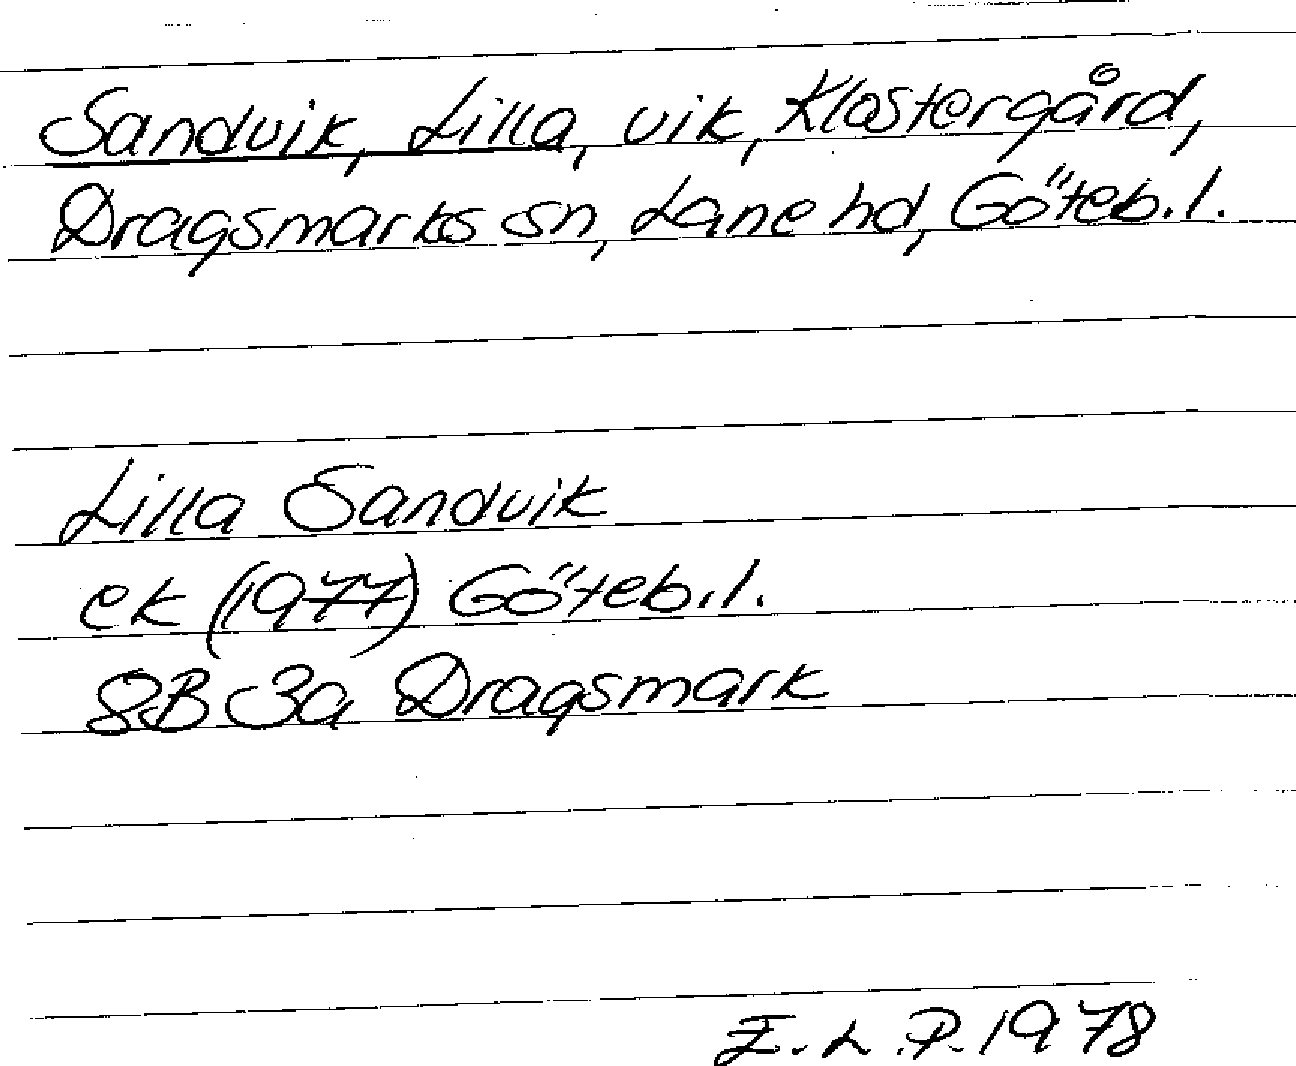 Sandvik, Lilla, vik, Klostergård,
Dragsmarks sn, Lane hd, Göteb.l.
Lilla Sandvik
ek (1977) Göteb.l.
8B 3a Dragsmark
E.L.P. 1978